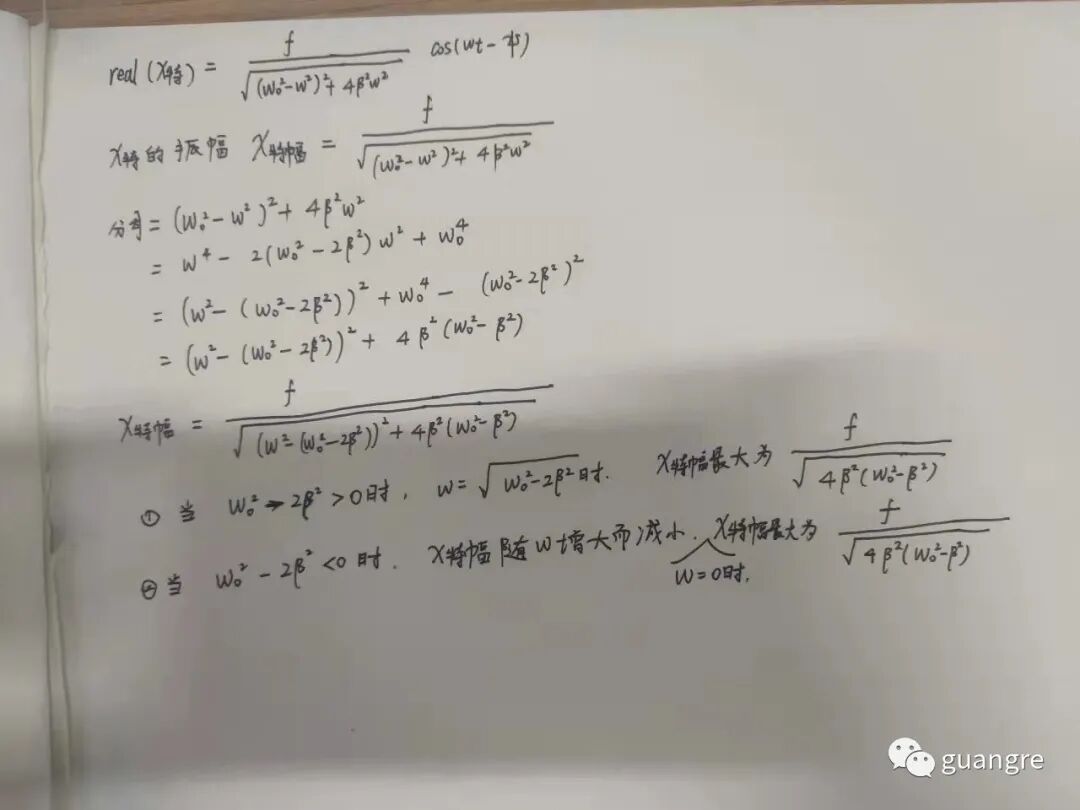 real(x特) = f / √((w₀²-w²)²+4β²w²) cos(wt-ψ)
x特的振幅 x特幅 = f / √((w₀²-w²)²+4β²w²)
= (w₀²-w²)²+4β²w²
= w⁴-2(w₀²-2β²)w²+w₀⁴
= (w²-(w₀²-2β²))²+w₀⁴-(w₀²-2β²)²
= (w²-(w₀²-2β²))²+4β²(w₀²-β²)
x特幅 = f / √((w²-(w₀²-2β²))²+4β²(w₀²-β²))
① 当 w₀²-2β²>0时, w=√(w₀²-2β²)时. x特幅最大为 f / √(4β²(w₀²-β²))
② 当 w₀²-2β²<0时. x特幅随w增大而减小. x特幅最大为 f / √(4β²(w₀²-β²))
w=0时.
guangre